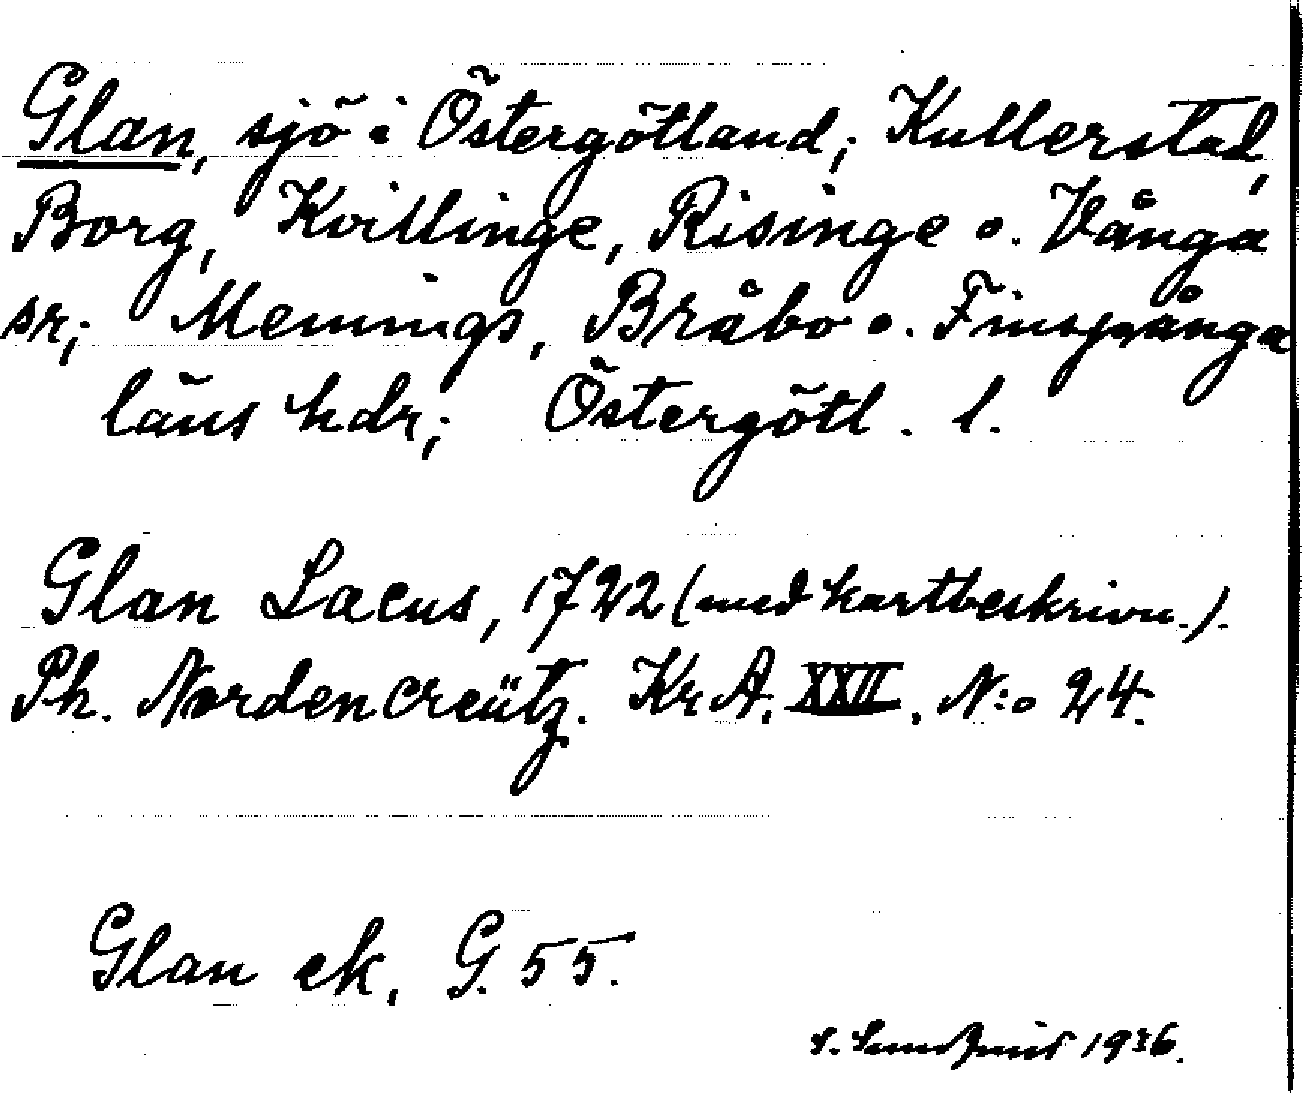 Glan, sjö i Östergötland; Kullerstad,
Borg, Kvillinge, Risinge o. Vånga
sr; Memmings, Bråbo o. Finspånga
läns hdr; Östergötl. l.
Glan Lacus, 1722 (med kartbeskrivn.).
Ph. Nordencreütz. Kr. A. XXII. N:o 24.
Glan ek, G. 55.
S. 1936.